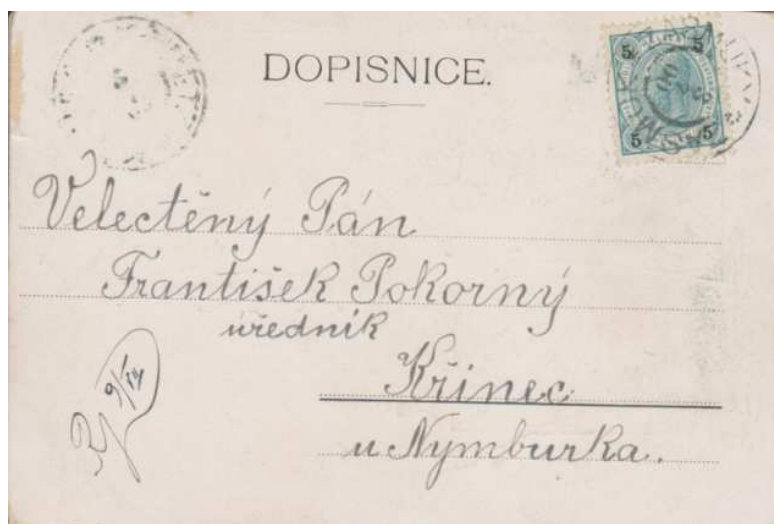 DOPISNICE.
5 5
5 5
Velectěný Pán
František Pokorný
úředník
Křinec
u Nymburka.
9/12